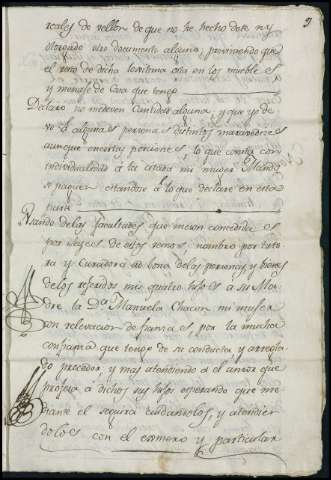 reales de vellon de que no he hecho dote ni
otorgado otro documento alguno, previniendo que
el resto de dicha lexitima esta en los muebles
y menaje de Casa que tengo
Declaro no me deven Cantidad alguna, y que yo de
vo á algunas personas distintos maravedises
aunque en cortas porciones, lo que consta con
individualidad á la citada mi muger Mando
se paguen estandose á lo que declare en esta
parte
Usando de las facultades que me son concedidas
por Leyes de estos Reynos: nombro por tuto
ra y Curadora ad bona de las personas, y bienes
de los referidos mis quatro hijos á su Ma
dre la Dª Manuela Chacon mi muger
con relevacion de fianzas, por la mucha
confianza que tengo de su conducta y arregla
do proceder, y mas atendiendo al amor que
profesa á dichos sus hijos esperando que me
diante el seguirá cuidandolos, y atendien
dolos con el esmero y particular